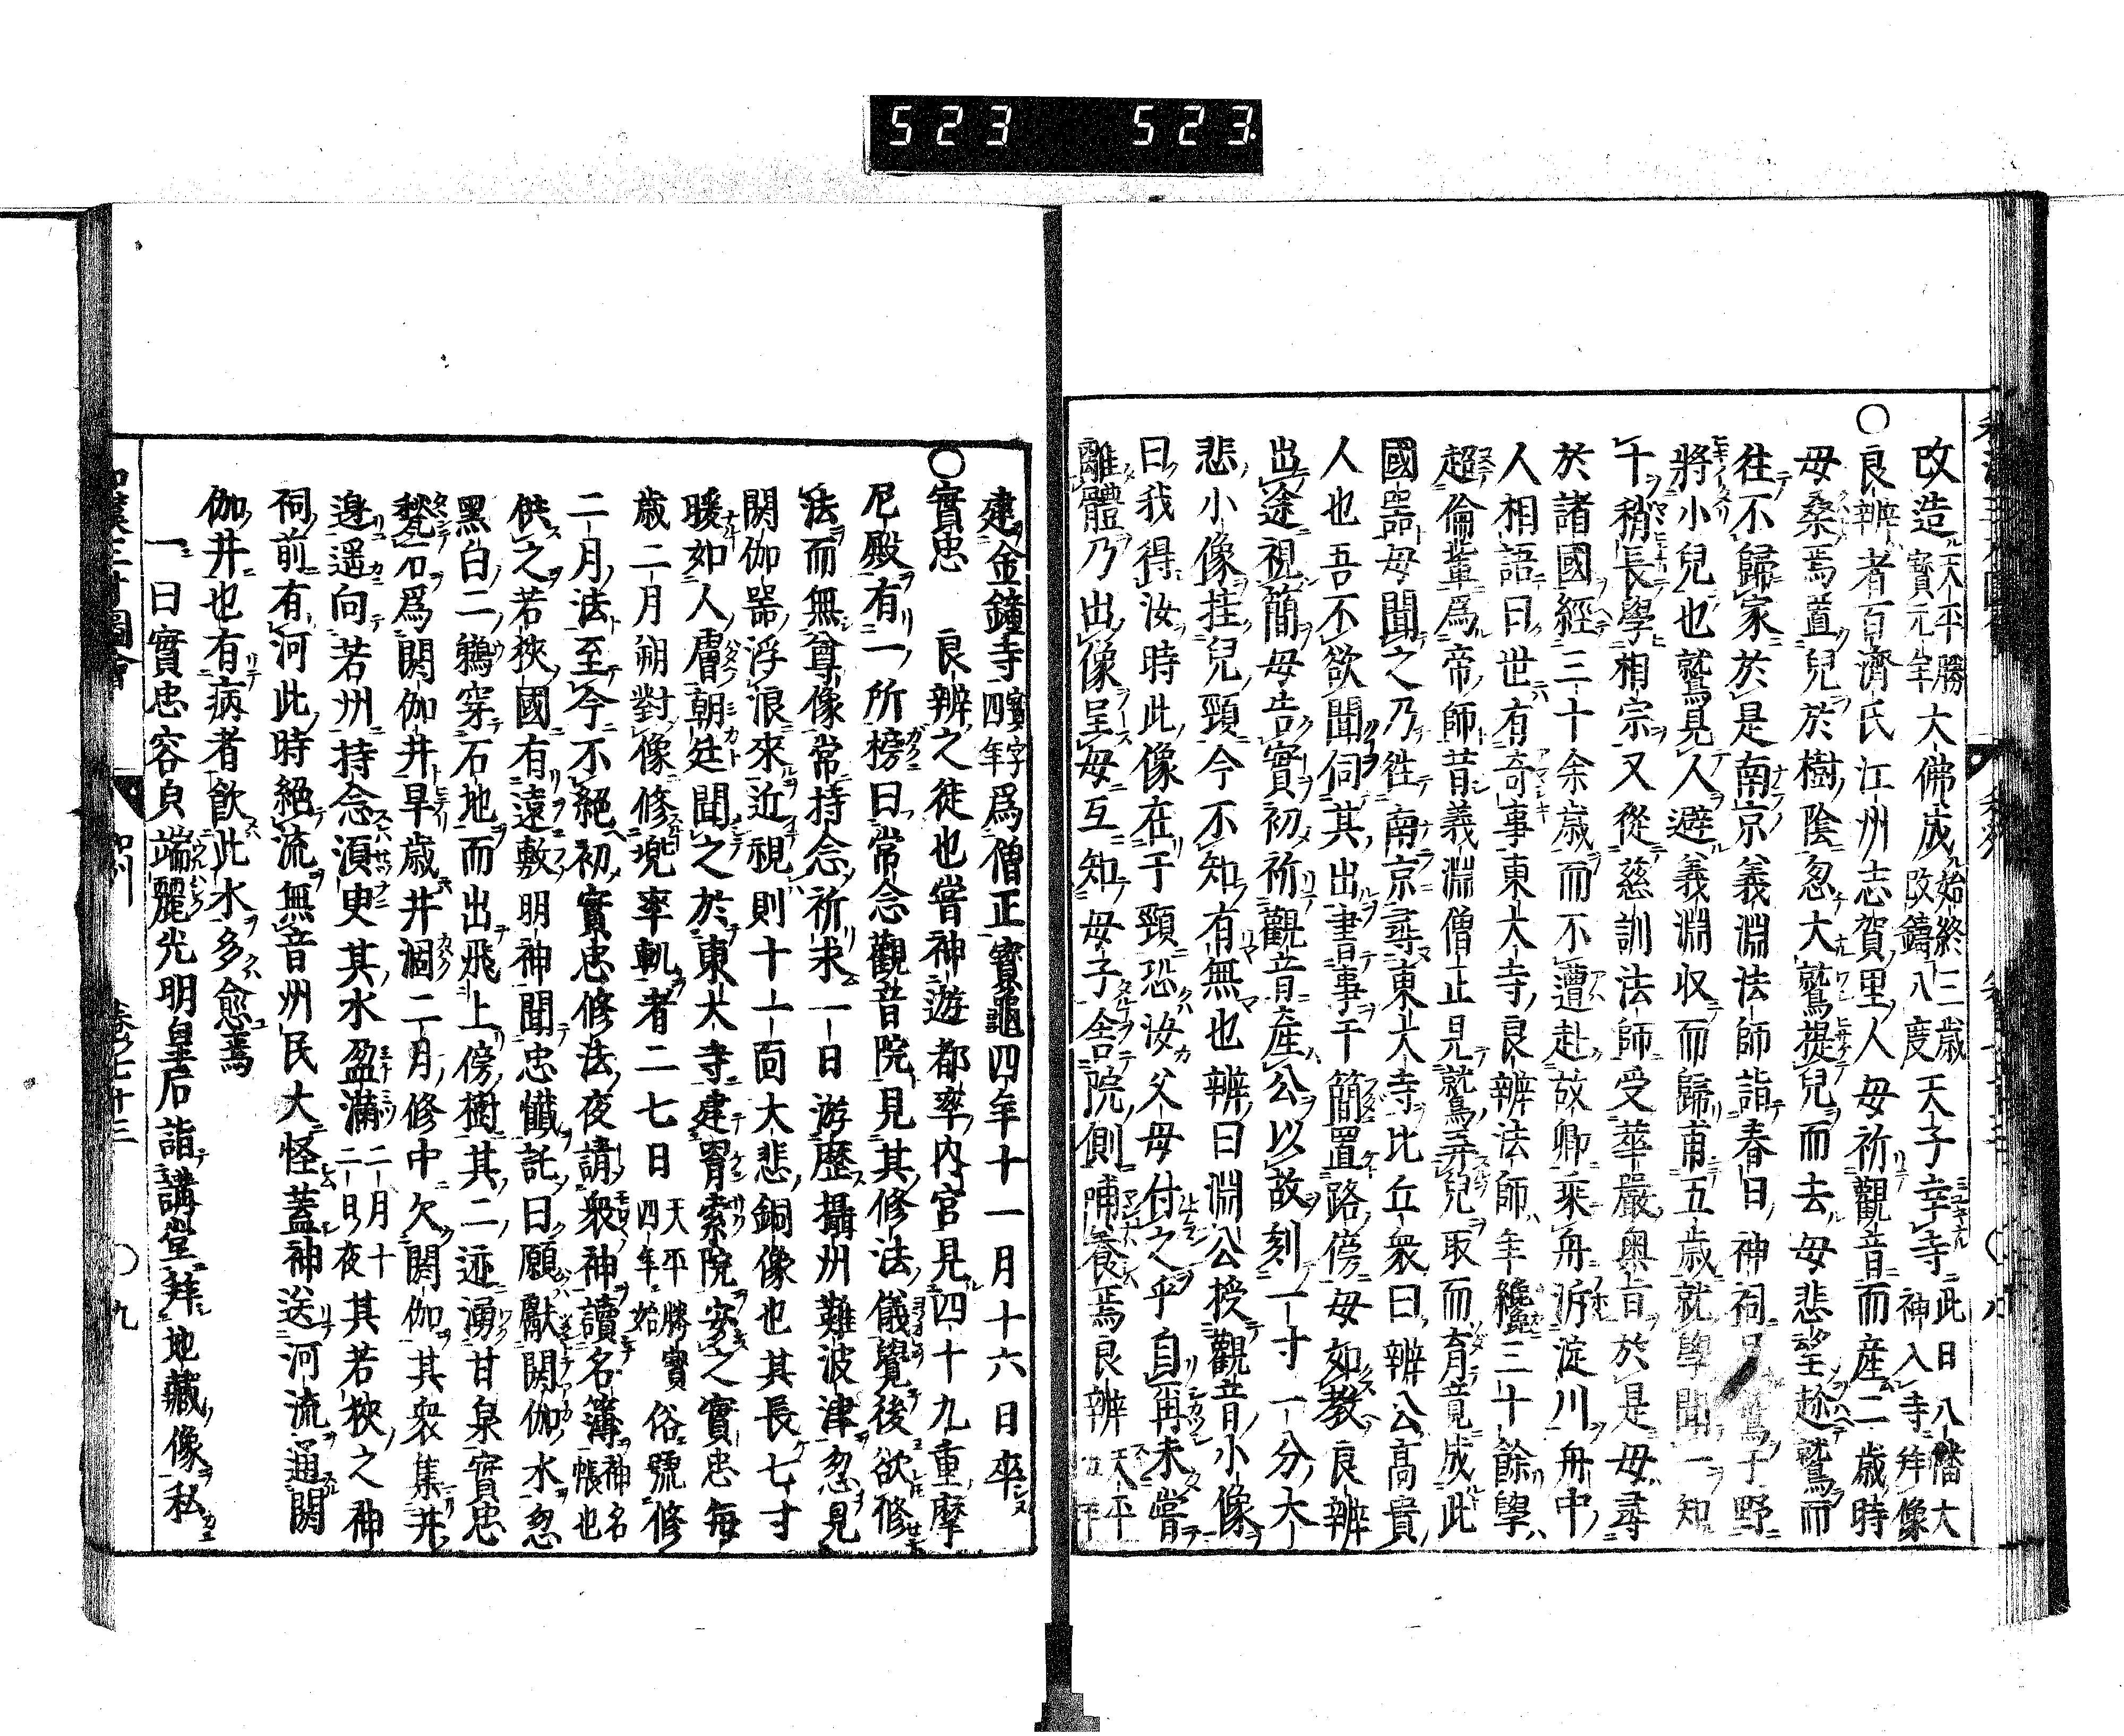 523 523
改造天平勝寶元年大佛成始終三歳改鑄八度天子幸寺此日八幡大神入寺拜像
○良辨者百濟氏江州志賀里人母祈觀音而産二歳時
母桑焉置兒於樹陰忽大鷲提兒而去母悲望趁鷲而
往不歸家於是南京義淵法師詣春日神祠鷲子野
將小兒也鷲見人避義淵収而歸甫五歳就學聞一知
十稍長學相宗又從慈訓法師受華嚴奥旨於是母尋
於諸國經三十余歳而不遭赴故郷乘舟泝淀川舟中
人相語曰世有奇事東大寺良辨法師年纔三十餘學
超倫輩爲帝師昔義淵僧正見鷲弄兒取而育竟成此
國器母聞之乃徃南京尋東大寺比丘衆曰辨公高貴
人也吾不欲聞伺其出書事于簡置路傍母如教良辨
出途視簡母告實初祈觀音産公以故刻一寸一分大
悲小像挂兒頸今不知有無也辨曰淵公授觀音小像
曰我得汝時此像在于頸恐汝父母付之乎自爾未嘗
離體乃出像呈母互知母子舎院側哺養焉良辨天平五年
建金鐘寺寳字四年爲僧正寳龜四年十一月十六日卒
○實忠　良辨之徒也甞神遊都率内宮見四十九重摩
尼殿有一所榜曰常念觀音院見其修法儀覺後欲修
法而無尊像常持念祈求一日游歴攝州難波津忽見
閼伽器浮浪來近視則十一面大悲銅像也其長七寸
暖如人膚朝廷聞之於東大寺建羂索院安之實忠毎
歳二月朔對像修兠率軌者二七日天平勝寳四年始俗號修
二月法至今不絕初實忠修法夜請衆神讀名簿神名帳也
供之若狹國有遠敷明神聞忠懺託曰願獻閼伽水忽
黑白二鵜穿石地而出飛上傍樹其二迹湧甘泉實忠
甃石爲閼伽井早歳井涸二月修中欠閼伽其衆集井
邉遥向若州持念湏臾其水盈滿二月十二日夜其若狹之神
祠前有河此時絕流無音州民大怪蓋神送河流通閼
伽井也有病者飲此水多愈焉
一曰實忠容皃端麗光明皇后詣講堂拜地藏像私
和漢三才圖會　和州　卷之七十三　○九